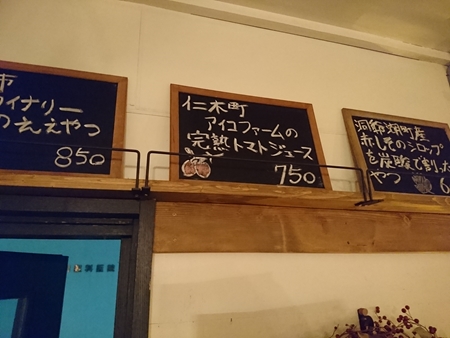 市
ワイナリー
のええやつ
850
仁木町
アイコファームの
完熟トマトジュース
750
洞爺湖町産
赤しそのシロップ
を炭酸で割った
やつ
6